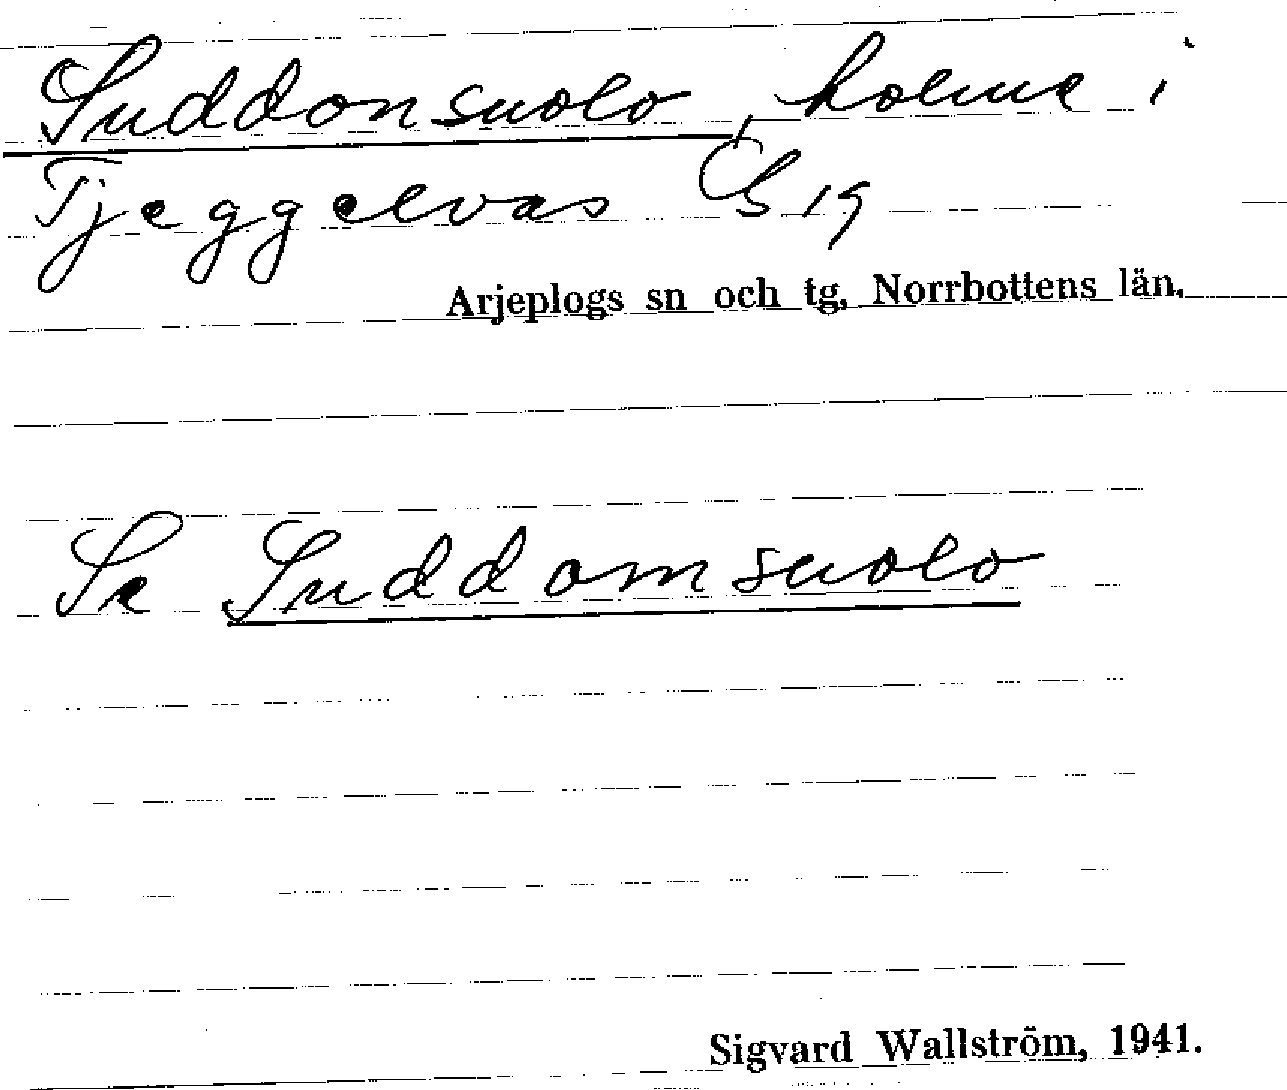 Suddonsuolo, holme i
Tjeggelvas S 19
Arjeplogs sn och tg, Norrbottens län.
Se Suddomsuolo
Sigvard Wallström, 1941.